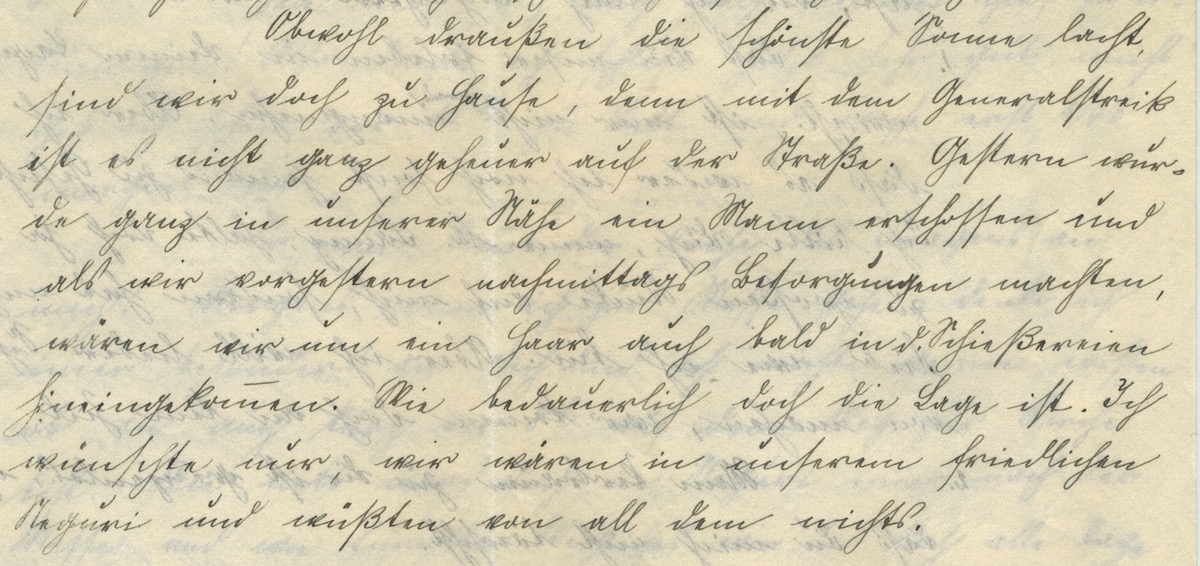 Obwohl draußen die schönste Sonne lacht,
sind wir doch zu Hause, denn mit dem Generalstreik
ist es nicht ganz geheuer auf der Straße. Gestern wur-
de ganz in unserer Nähe ein Mann erschossen und
als wir vorgestern nachmittags Besorgungen machten,
wären wir um ein Haar auch bald in d. Schießereien
hineingekom̅en. Wie bedauerlich doch die Lage ist. Ich
wünschte nur, wir wären in unserem friedlichen
Neguri und wüßten von all dem nichts.